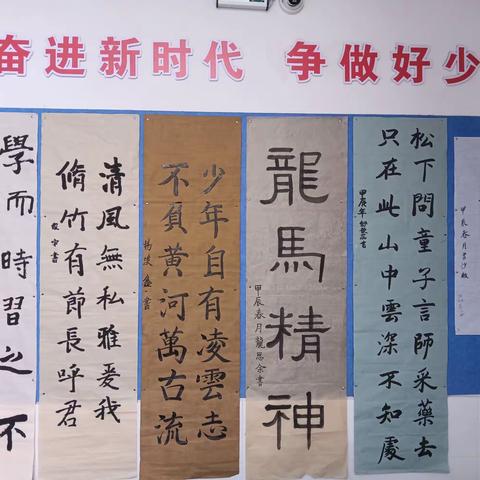 奋进新时代 争做好少
學而時習之不
清風無私雅爱我
脩竹有節長呼君
少年自有凌雲志
不負黄河萬古流
龍馬精神
甲辰春月龍思余書
松下問童子言師采藥去
只在此山中雲深不知處
甲辰春月